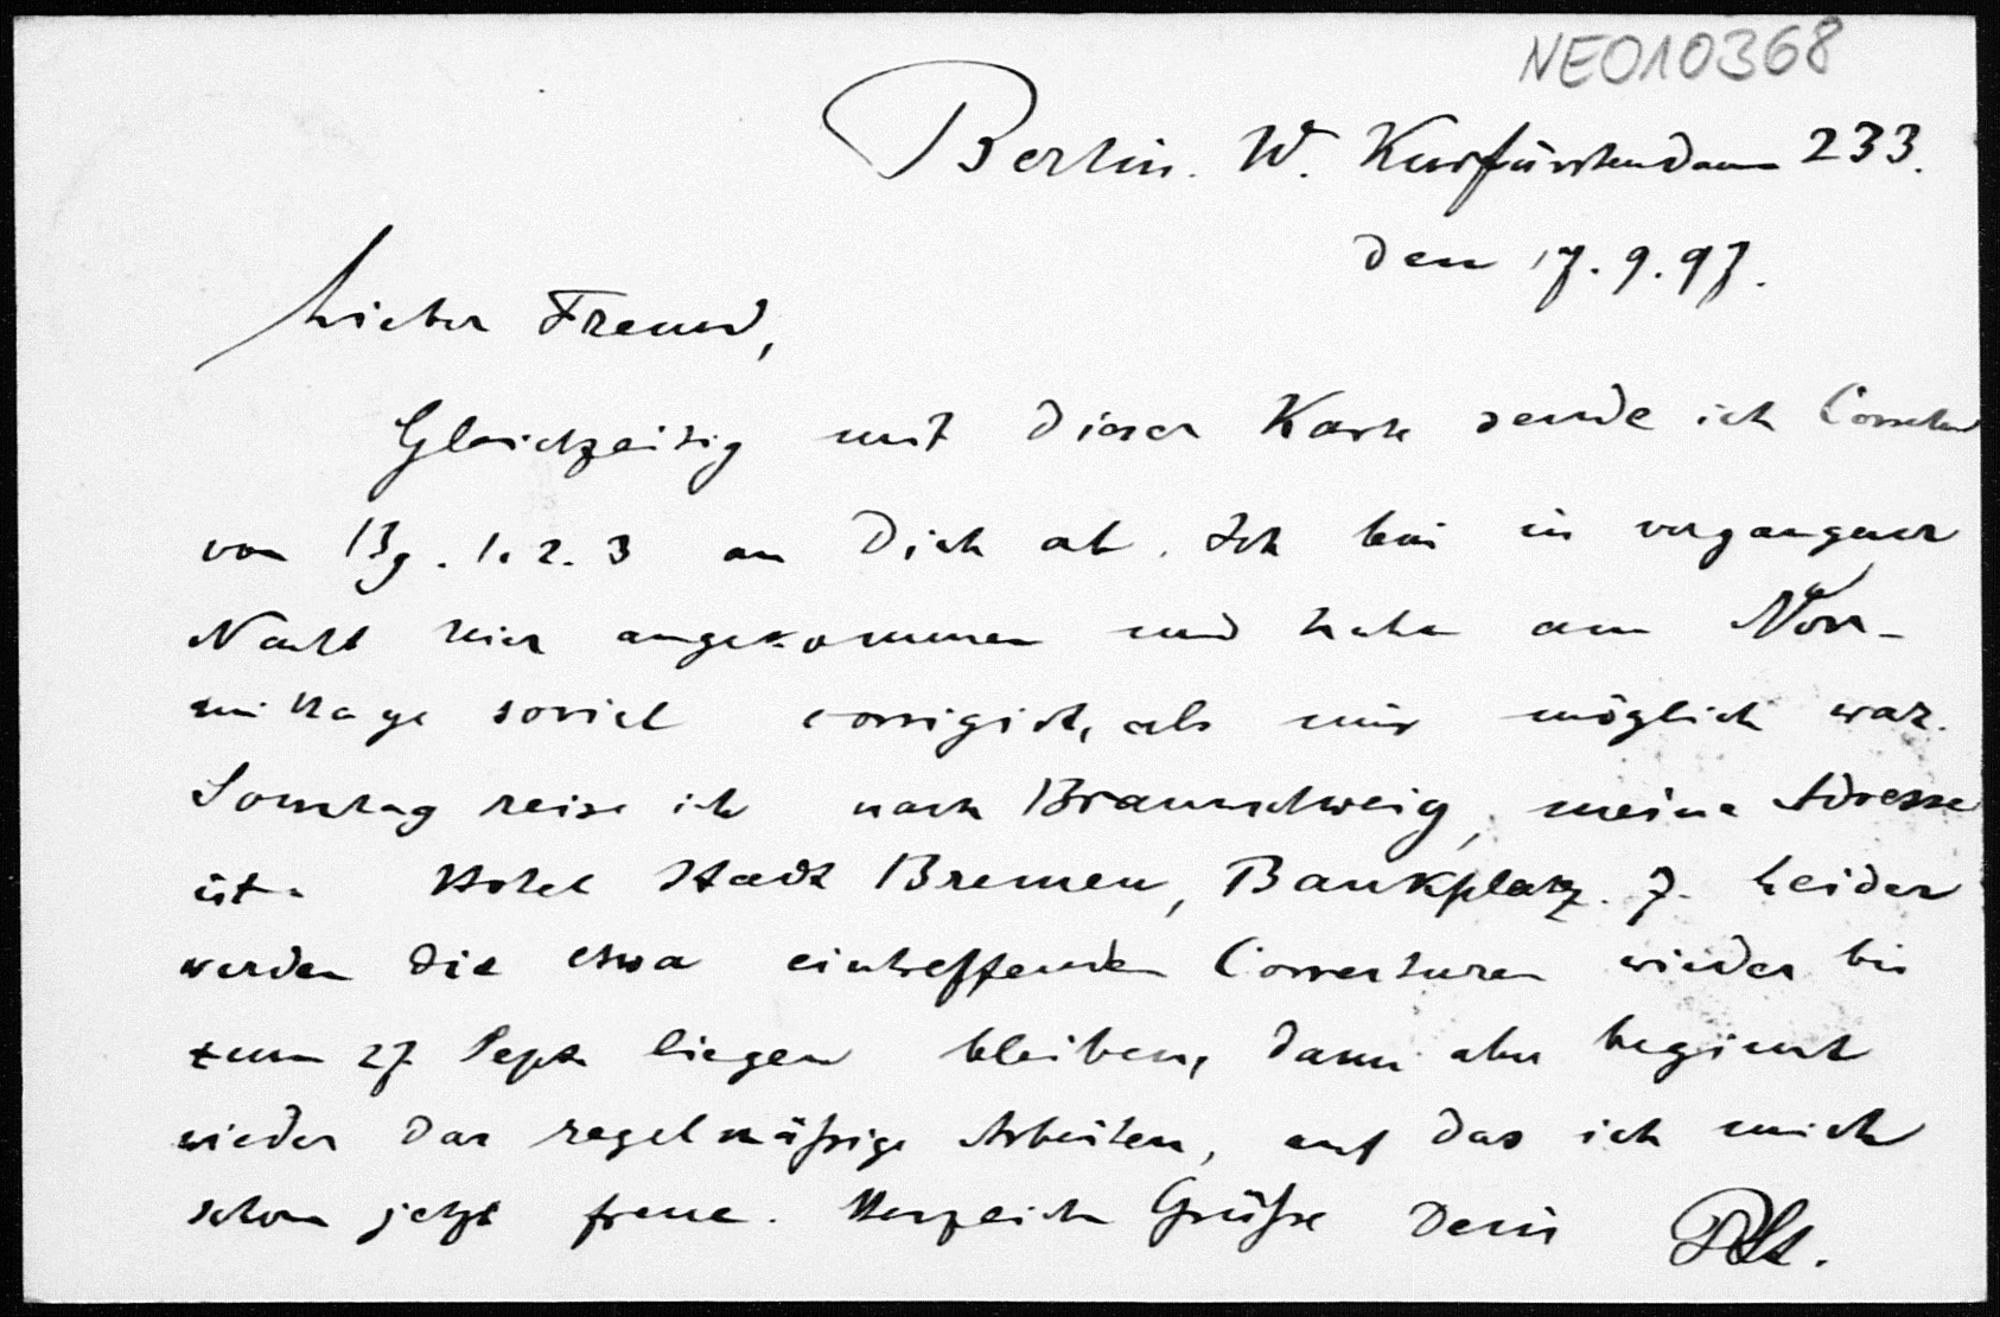 NE010368
Berlin. W. Kurfürstendamm 233.
den 17.9.97.
Lieber Freund,
Gleichzeitig mit dieser Karte sende ich
von Bg. 1. 2. 3 an Dich ab. Ich bin in vergangener
Nacht hier angekommen und habe am Vor-
mittage soviel corrigirt, als mir möglich war.
Sonntag reise ich nach Braunschweig, meine Adresse
ist: Hotel Stadt Bremen, Bankplatz. 7. Leider
werden die etwa eintreffenden Correcturen wieder bis
zum 27 Sept. liegen bleiben, dann aber beginnt
wieder das regelmäßige Arbeiten, auf das ich mich
schon jetzt freue. Herzliche Grüße Dein